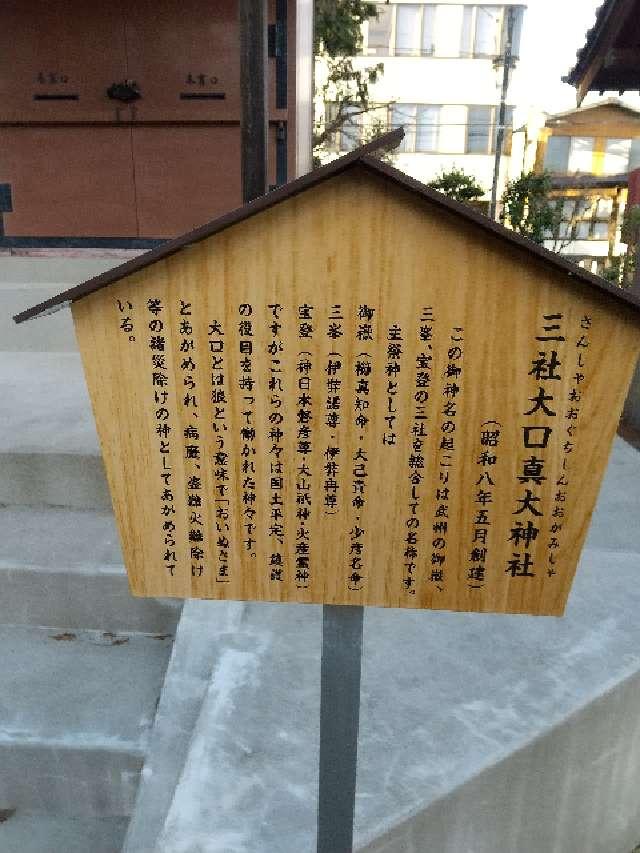 さんしゃおおぐちしんおおがみしゃ
三社大口真大神社
（昭和八年五月創建）
この御神名の起こりは武州の御嶽、
三峯、宝登の三社を総合しての名称です。
主祭神としては
御嶽（櫛真知命・大己貴命・少彦名命）
三峯（伊弉諾尊・伊弉冉尊）
宝登（神日本磐彦尊・大山祇神・火産霊神）
ですがこれらの神々は国土平定、建設
の役目を持って働かれた神々です。
大口とは狼という意味で「おいぬさま」
とあがめられ、病魔、盗難火難除け
等の諸災除けの神としてあがめられて
いる。